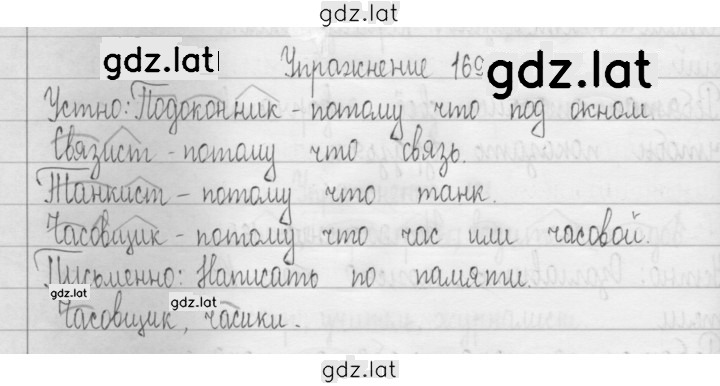 gdz.lat
gdz.lat
Упражнение 169
gdz.lat
Устно: Подоконник - потому что под окном
Связист - потому что связь.
Танкист - потому что танк.
Часовщик - потому что час или часовой.
Письменно: Написать по памяти.
gdz.lat
gdz.lat
Часовщик, часики.
gdz.lat